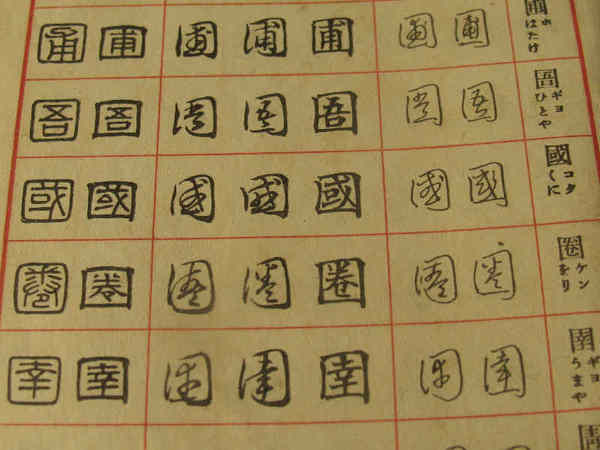 圃 ホ はたけ
圃 圃 圃 圃 圃 圃 圃
圄 ギヨ ひとや
圄 圄 圄 圄 圄 圄 圄
國 コク くに
國 國 國 國 國 國 國
圈 ケン をり
圈 圈 圈 圈 圈 圈 圈
圉 ギヨ うまや
圉 圉 圉 圉 圉 圉 圉